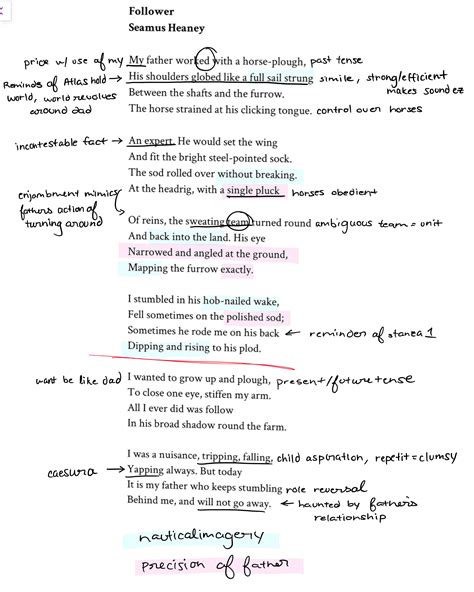 Follower
Seamus Heaney
pride w/ use of my My father worked with a horse-plough, past tense
Reminds of Atlas hold → His shoulders globed like a full sail strung simile, strong/efficient
world, world revolves Between the shafts and the furrow. makes sound ez
around dad The horse strained at his clicking tongue. control over horses
incontestable fact → An expert. He would set the wing
And fit the bright steel-pointed sock.
The sod rolled over without breaking.
enjambment mimics At the headrig, with a single pluck horses obedient
fathers action of
turning around Of reins, the sweating team turned round ambiguous team = unit
And back into the land. His eye
Narrowed and angled at the ground,
Mapping the furrow exactly.
I stumbled in his hob-nailed wake,
Fell sometimes on the polished sod;
Sometimes he rode me on his back ← reminder of stanza 1
Dipping and rising to his plod.
want be like dad I wanted to grow up and plough, present/future tense
To close one eye, stiffen my arm.
All I ever did was follow
In his broad shadow round the farm.
I was a nuisance, tripping, falling, child aspiration, repetit = clumsy
caesura → Yapping always. But today
It is my father who keeps stumbling role reversal
Behind me, and will not go away. ← haunted by fathers
relationship
nautical imagery
precision of father